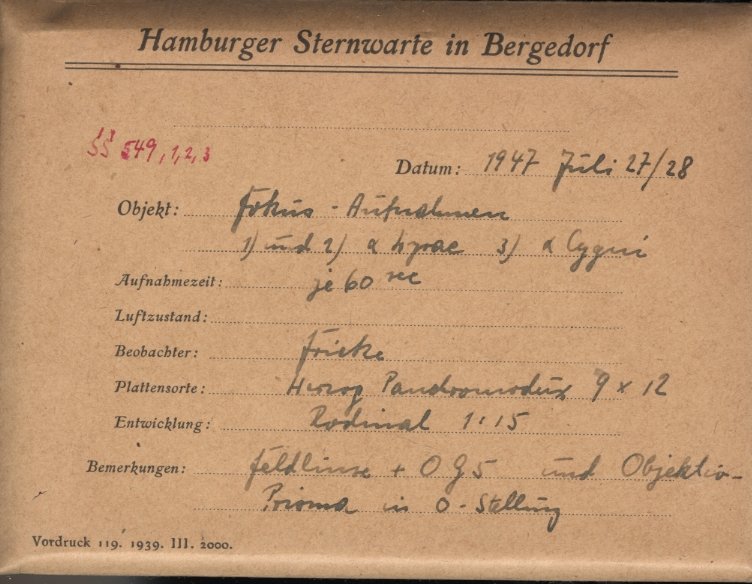 Hamburger Sternwarte in Bergedorf
SS 549, 1, 2, 3
Datum: 1947 Juli 27/28
Objekt: Fokus-Aufnahmen
1) und 2) α Lyrae 3) α Cygni
Aufnahmezeit: je 60 sec
Luftzustand:
Beobachter: Fricke
Plattensorte: Herzog 9 x 12
Entwicklung: Rodinal 1:15
Bemerkungen: Feldlinse + OG5 und Objektiv-
Prisma in 0-Stellung
Vordruck 119. 1939. III. 2000.